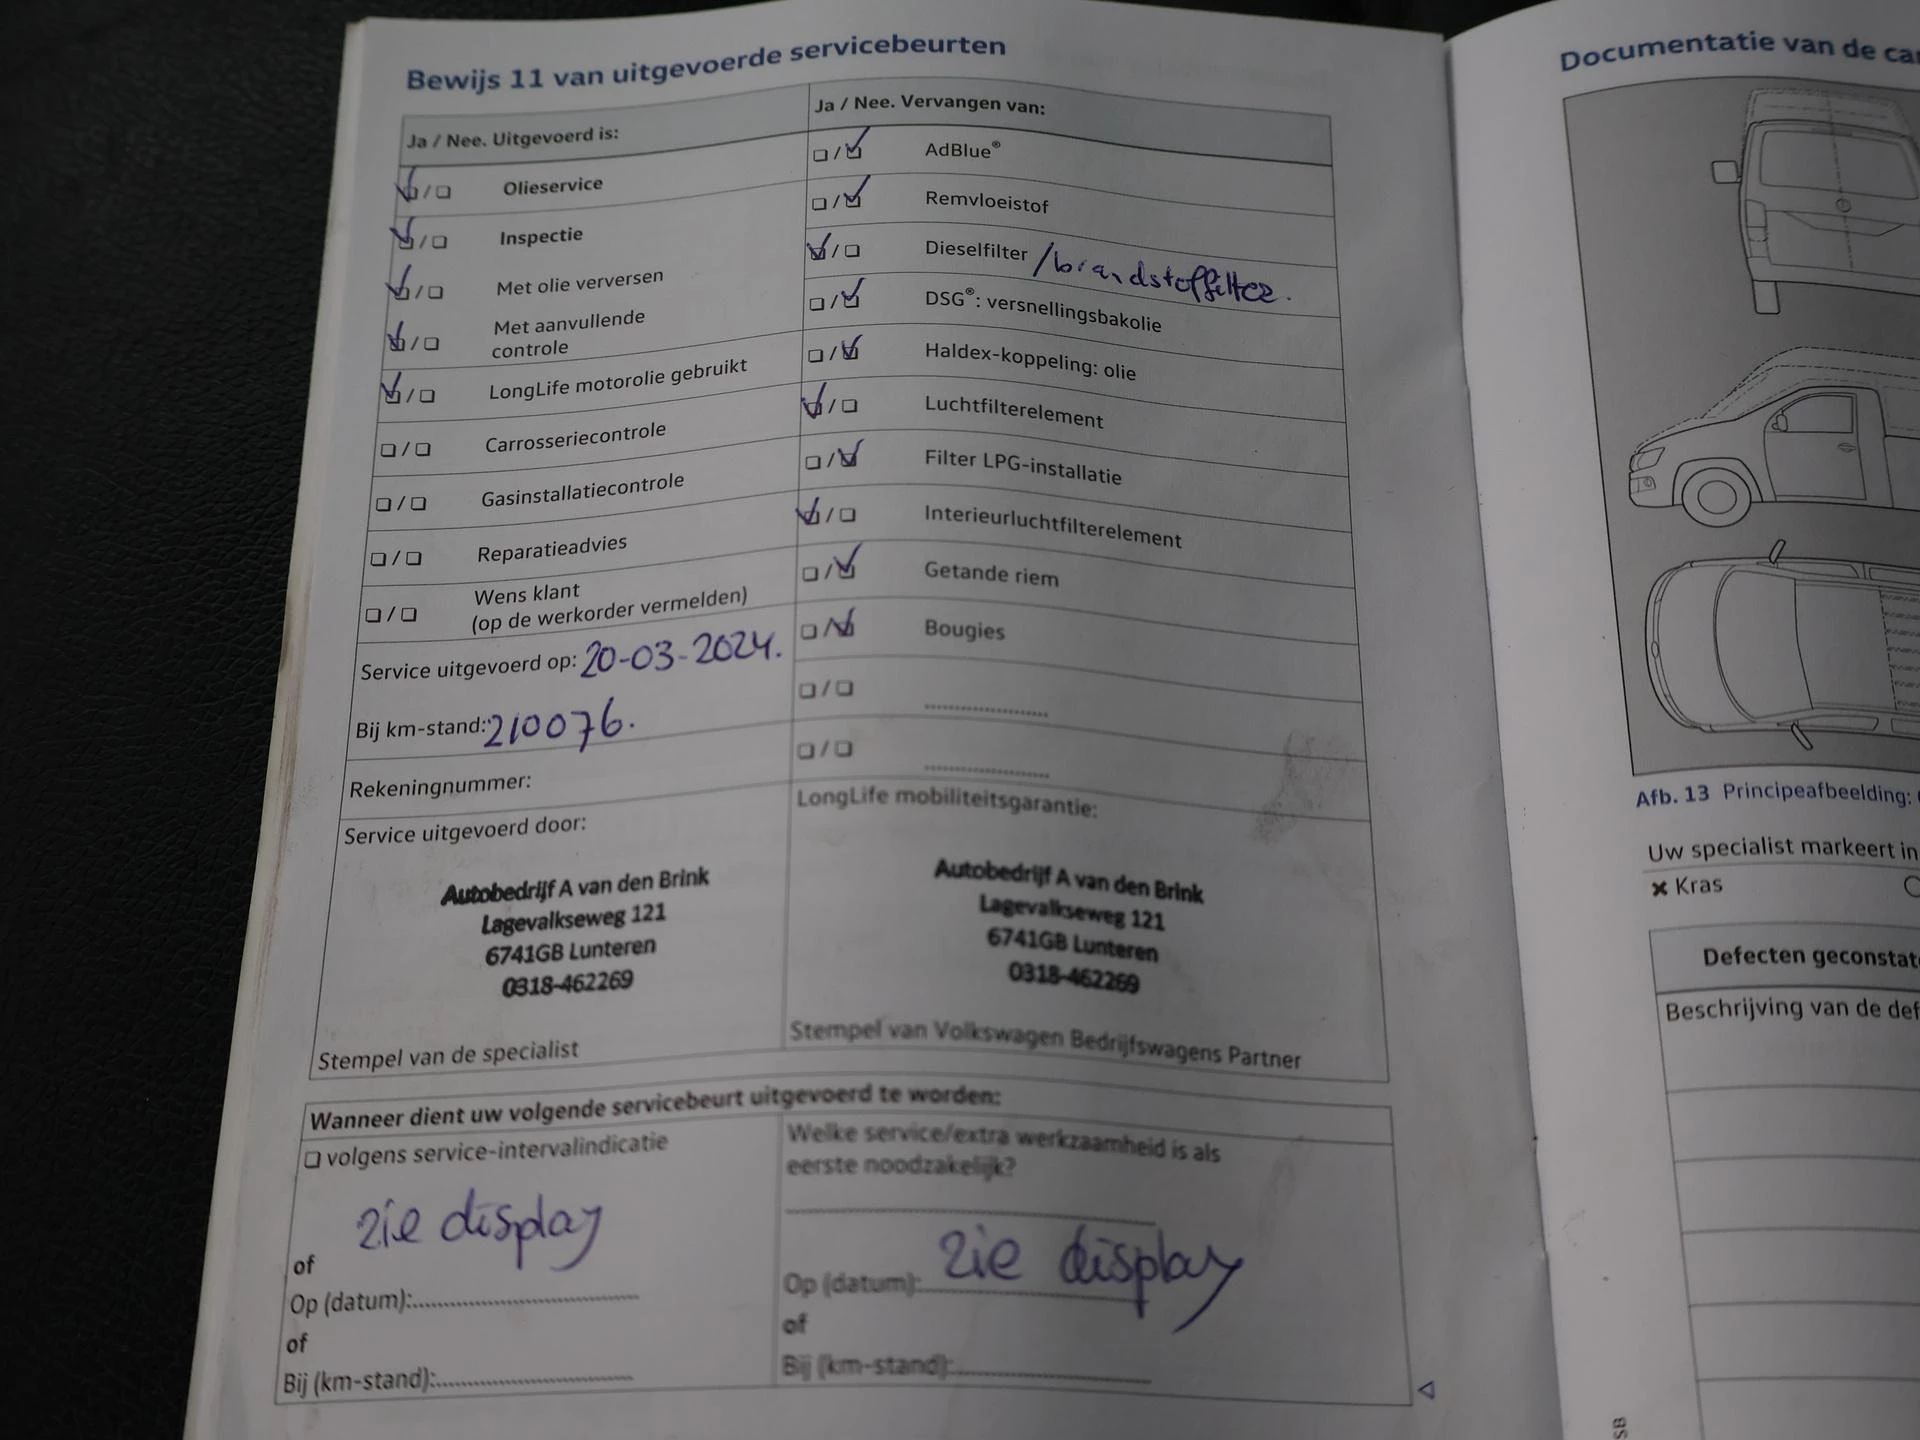 Bewijs 11 van uitgevoerde servicebeurten
Ja / Nee. Uitgevoerd is:
Olieservice
Inspectie
Met olie verversen
Met aanvullende
controle
LongLife motorolie gebruikt
Carrosseriecontrole
Gasinstallatiecontrole
Reparatieadvies
Wens klant
(op de werkorder vermelden)
Service uitgevoerd op: 20-03-2024.
Bij km-stand: 210076.
Rekeningnummer:
Service uitgevoerd door:
Autobedrijf A van den Brink
Lagevalkseweg 121
6741GB Lunteren
0318-462269
Stempel van de specialist
Ja / Nee. Vervangen van:
AdBlue®
Remvloeistof
Dieselfilter /brandstoffilter.
DSG®: versnellingsbakolie
Haldex-koppeling: olie
Luchtfilterelement
Filter LPG-installatie
Interieurluchtfilterelement
Getande riem
Bougies
LongLife mobiliteitsgarantie:
Autobedrijf A van den Brink
Lagevalkseweg 121
6741GB Lunteren
0318-462269
Stempel van Volkswagen Bedrijfswagens Partner
Wanneer dient uw volgende servicebeurt uitgevoerd te worden:
volgens service-intervalindicatie
zie display
of
Op (datum):
of
Bij (km-stand):
Welke service/extra werkzaamheid is als
eerste noodzakelijk?
zie display
Op (datum):
of
Bij (km-stand):
Documentatie van de
Afb. 13 Principeafbeelding:
Uw specialist markeert in
Kras
Defecten
Beschrijving van de